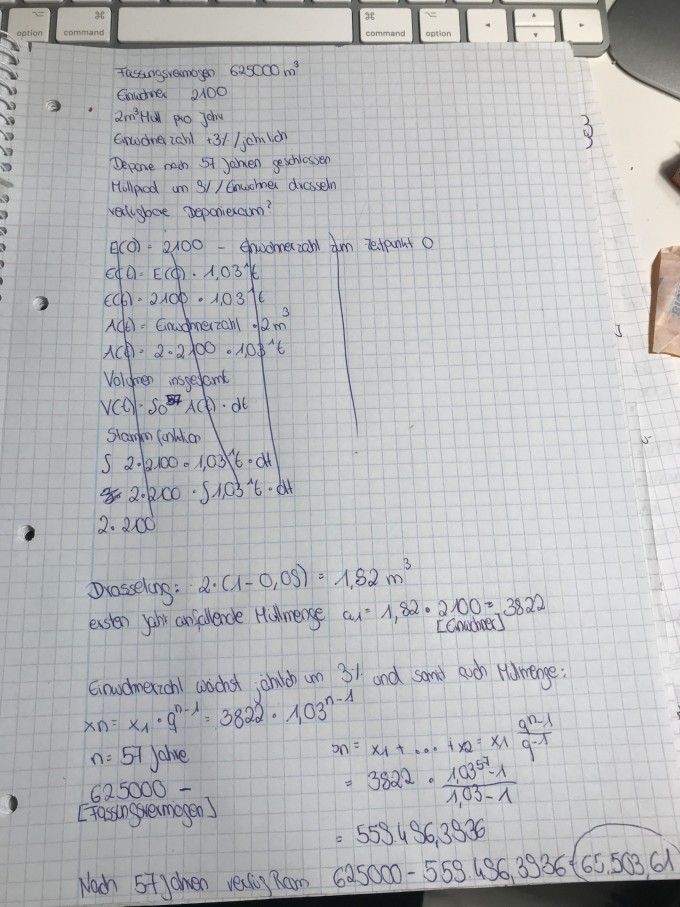 ⌘
⌥
option
command
command
option
Fassungsvermögen 625000 m³
Einwohner 2100
2m³ Müll pro Jahr
Einwohnerzahl +3% jährlich
Deponie nach 57 Jahren geschlossen
Müllprod um 9% / Einwohner drosseln
verfügbare Deponieraum?
E(0) = 2100 - Einwohnerzahl zum Zeitpunkt 0
E(t) = E(0) · 1,03^t
E(t) = 2100 · 1,03^t
A(t) = Einwohnerzahl · 2m³
A(t) = 2 · 2100 · 1,03^t
Volumen insgesamt
V(t) = S0^57 A(t) · dt
Stammfunktion
∫ 2 · 2100 · 1,03^t · dt
2 · 200 · ∫1,03^t · dt
2 · 200
Drosselung: 2 · (1 - 0,09) = 1,82 m³
ersten Jahr anfallende Müllmenge a1 = 1,82 · 2100 = 3822
[Einwohner]
Einwohnerzahl wächst jährlich um 3% und somit auch Müllmenge:
xn = x1 · q^n-1 = 3822 · 1,03^n-1
n = 57 Jahre
sn = x1 + ... + x2 = x1 q^n-1 / q-1
625000 -
[Fassungsvermögen]
= 3822 · 1,03^57-1 / 1,03-1
= 559.496,3936
Nach 57 Jahren verfüg Raum 625000 - 559.496,3936 = 65.503,61